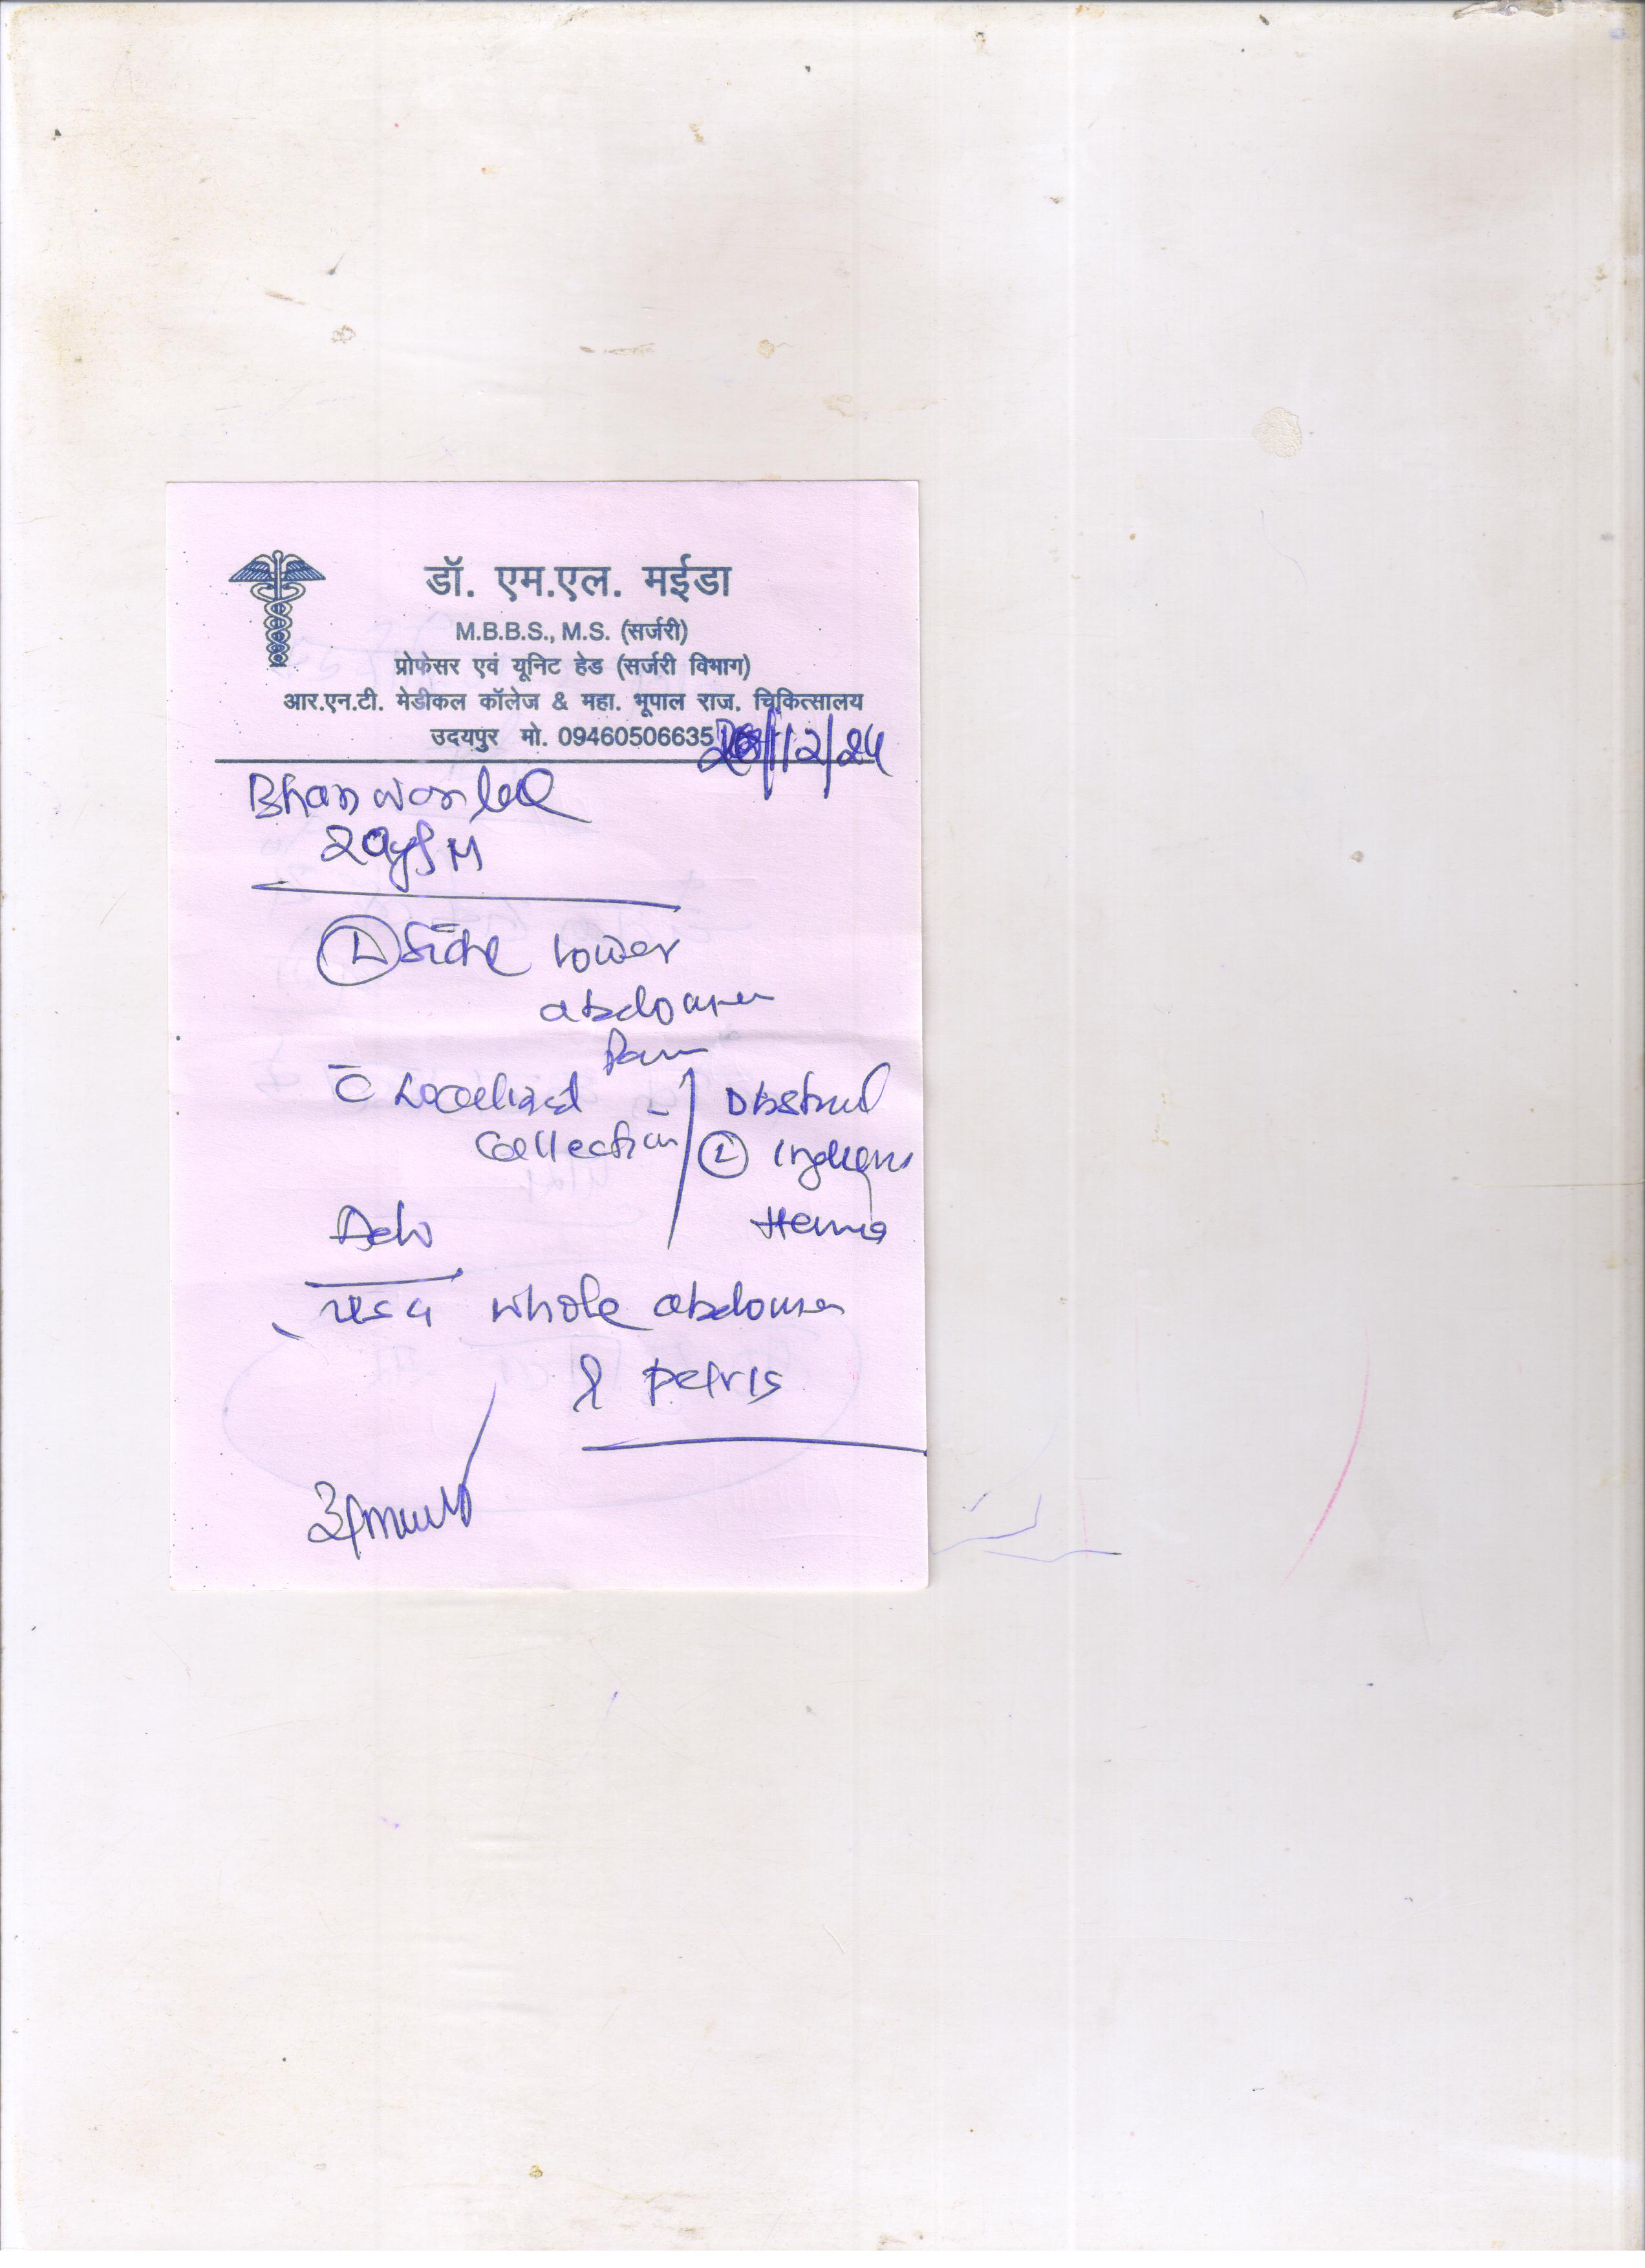 डॉ. एम.एल. मईडा
M.B.B.S., M.S. (सर्जरी)
प्रोफेसर एवं यूनिट हेड (सर्जरी विभाग)
आर.एन.टी. मेडीकल कॉलेज & महा. भूपाल राज. चिकित्सालय
उदयपुर मो. 09460506635
/12/24
Bhanwarlal
M
(L) Side lower
abdomen
Pain
c̄ Localized
Collection
Obstruc
(L) Inguinal
Hernia
Adv
USG whole abdomen
& pelvis